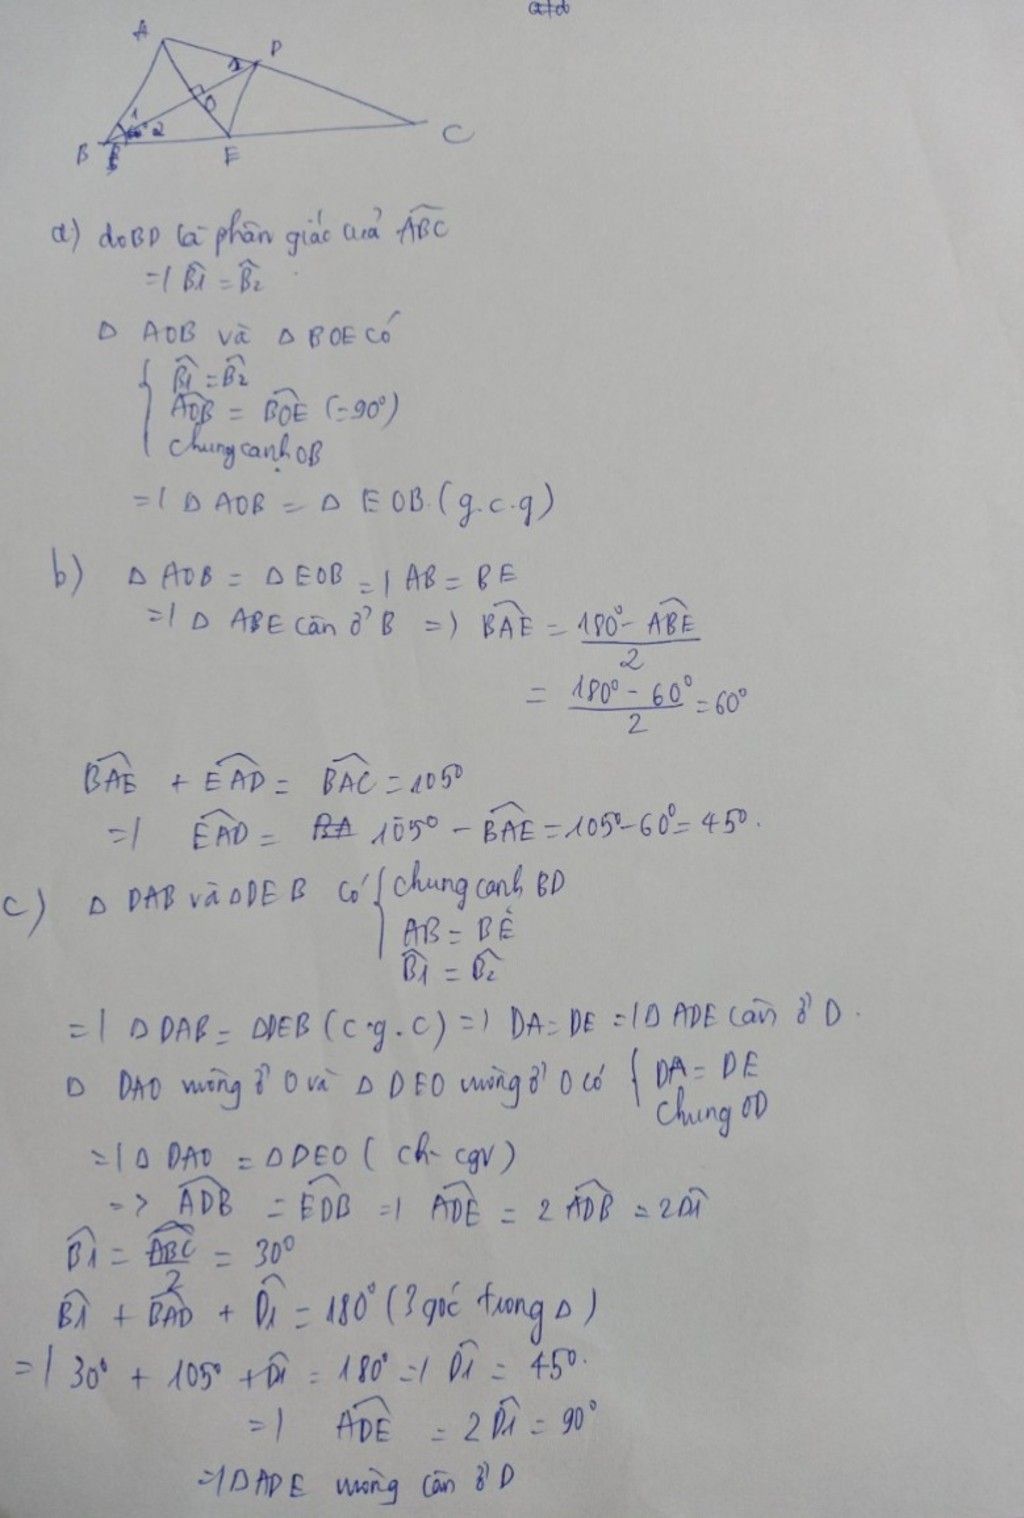 A
D
1
O
1
60° 2
B
E
C
a) do BD là phân giác của ABC
=> B1 = B2
Δ AOB và Δ BOE có
B1 = B2
AOB = BOE (=90°)
chung cạnh OB
=> Δ AOB = Δ EOB (g.c.g)
b) Δ AOB = Δ EOB => AB = BE
=> Δ ABE cân ở B => BAE = 180° - ABE / 2
= 180° - 60° / 2 = 60°
BAE + EAD = BAC = 105°
=> EAD = 105° - BAE = 105° - 60° = 45°.
c) Δ DAB và Δ DEB có { chung cạnh BD
AB = BE
B1 = B2
=> Δ DAB = Δ DEB (c.g.c) => DA = DE => Δ ADE cân ở D.
Δ DAO vuông ở O và Δ DEO vuông ở O có { DA = DE
chung OD
=> Δ DAO = Δ DEO (ch-cgv)
=> ADB = EDB => ADE = 2 ADB = 2D1
B1 = ABC / 2 = 30°
B1 + BAD + D1 = 180° (3 góc trong Δ)
=> 30° + 105° + D1 = 180° => D1 = 45°.
=> ADE = 2D1 = 90°
=> Δ ADE vuông cân ở D